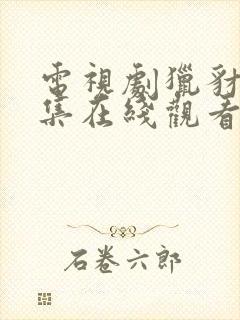 電視劇獵豺
集在綫觀看
石卷六郎